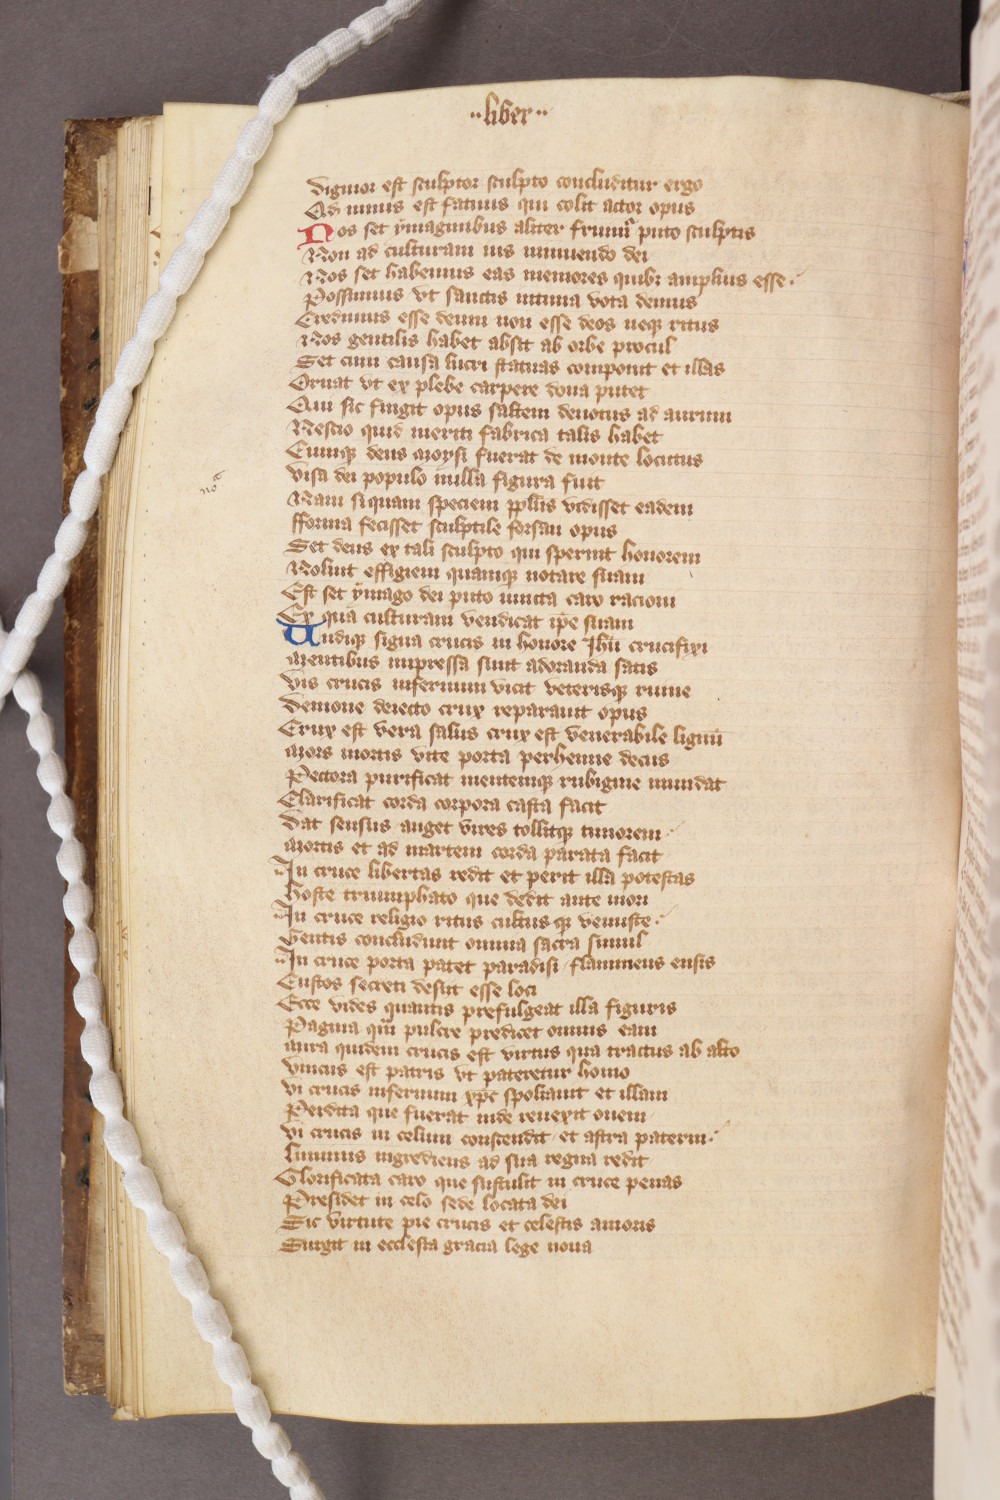 ··liber··
Dignior est sculptor sculpto concluditur ergo
Ad minus est fatuus qui colit actor opus
Nos set ymaginibus aliter fruimur puto sculptis
Non ad culturam nis innuendo dei
Nos set habemus eas memores quibz amplius esse
Possimus vt sanctis intima vota demus
Credimus esse deum non esse deos neqz ritus
Nos gentilis habet absit ab orbe procul
Set cum causa lucri statuas componit et illas
Ornat vt ex plebe carpere dona putet
Qui sic fingit opus saltem deuotus ad aurum
Nescio quid meriti fabrica talis habet
Cumqz deus moysi fuerat de monte locutus
Visa dei populo nulla figura fuit
noa
Nam si quam speciem ppllis vidisset eadem
fforma fecisset sculptile forsan opus
Set deus ex tali sculpto qui spernit honorem
Noluit effigiem quamqz notare suam
Est set ymago dei puto iuncta caro racioni
Ex qua culturam vendicat ipe suam
Undiqz signa crucis in honore Ihu crucifixi
Mentibus impressa sunt adoranda satis
Vis crucis infernum vicit veterisqz ruine
Demone deiecto crux reparauit opus
Crux est vera salus crux est venerabile lignu
Mors mortis vite porta perhenne decus
Pectora purificat mentemqz rubigine mundat
Clarificat corda corpora casta facit
Dat sensus auget vires tollitqz timorem
Mortis et ad martem corda parata facit
In cruce libertas redit et perit illa potestas
Hoste triumphato que dedit ante mori
In cruce religio ritus cultusqz venuste
Gentis concludunt omnia sacra simul
In cruce porta patet paradisi flammeus ensis
Custos secreti desiit esse loci
Ecce vides quantis prefulgeat illa figuris
Pagina qui pulcre predicet omnis eam
Mira quidem crucis est virtus qua tractus ab alto
Vnicus est patris vt pateretur homo
Vi crucis infernum xpc spoliauit et illam
Perdita que fuerat inde reuexit ouem
Vi crucis in celum conscendit et astra paterni
Luminus ingrediens ad sua regna redit
Glorificata caro que sustulit in cruce penas
Presidet in celo sede locata dei
Sic virtute pie crucis et celestis amoris
Surgit in ecclesia gracia lege noua